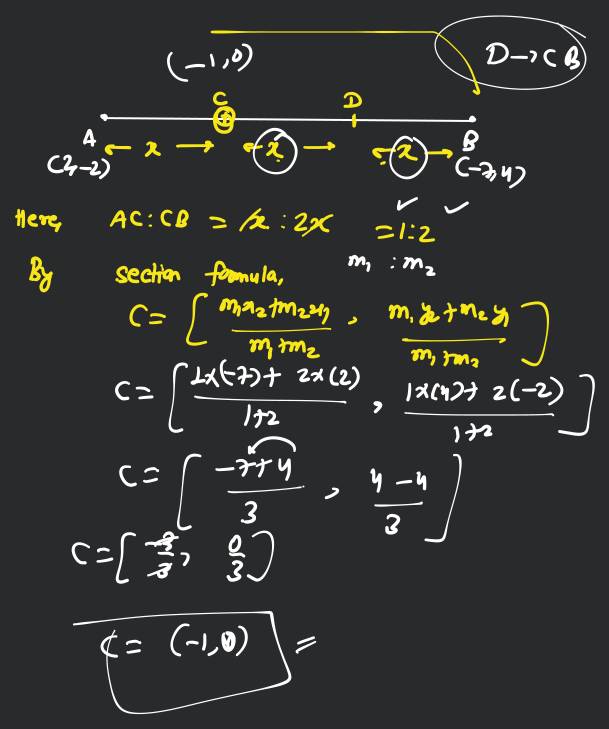 (-1,0) D→CB
C D
A B
(2,-2) x x x (-7,4)
Here, AC:CB = x : 2x = 1:2
By section formula, m₁ : m₂
C = [ (m₁x₂+m₂x₁)/(m₁+m₂) , (m₁y₂+m₂y₁)/(m₁+m₂) ]
C = [ (1x(-7)+ 2x(2))/(1+2) , (1x(4)+ 2(-2))/(1+2) ]
C = [ (-7+4)/3 , (4-4)/3 ]
C = [ -3/3, 0/3 ]
C = (-1,0) =